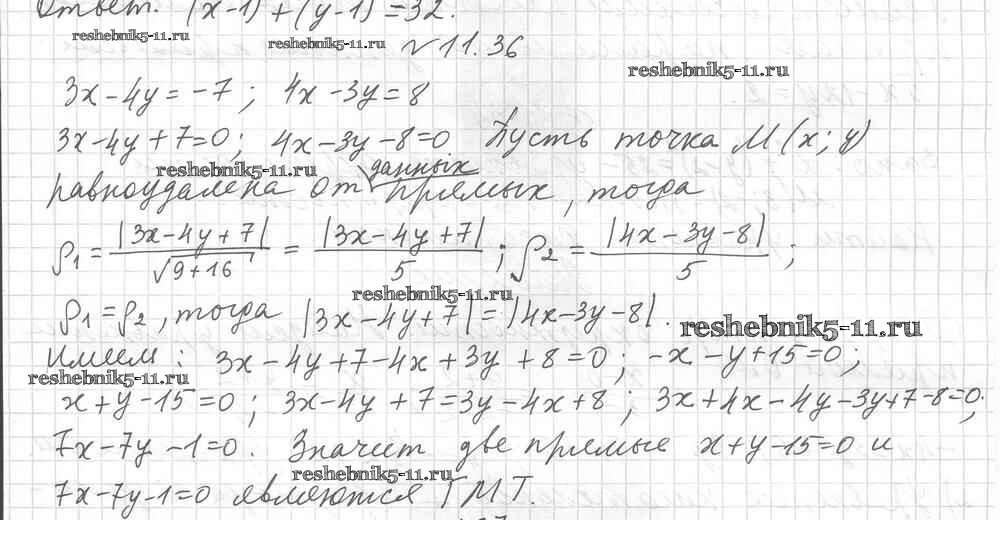 Ответ. (x-1) + (y-1) = 32.
reshebnik5-11.ru
reshebnik5-11.ru
№ 11.36
reshebnik5-11.ru
3x - 4y = -7 ; 4x - 3y = 8
3x - 4y + 7 = 0 ; 4x - 3y - 8 = 0. Пусть точка M(x; y)
reshebnik5-11.ru
равноудалена от данных прямых, тогда
ρ₁ = |3x - 4y + 7| / √(9 + 16) = |3x - 4y + 7| / 5 ; ρ₂ = |4x - 3y - 8| / 5 ;
reshebnik5-11.ru
ρ₁ = ρ₂, тогда |3x - 4y + 7| = |4x - 3y - 8|.
reshebnik5-11.ru
Имеем: 3x - 4y + 7 - 4x + 3y + 8 = 0 ; -x - y + 15 = 0 ;
reshebnik5-11.ru
x + y - 15 = 0 ; 3x - 4y + 7 = 3y - 4x + 8 ; 3x + 4x - 4y - 3y + 7 - 8 = 0 ;
7x - 7y - 1 = 0. Значит две прямые x + y - 15 = 0 и
reshebnik5-11.ru
7x - 7y - 1 = 0 являются ГМТ.